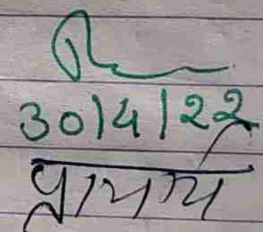 30/4/22
प्राचार्य